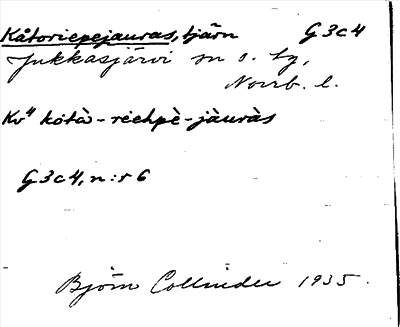 Kåtoriepejauras, tjärn G3c4
Jukkasjärvi sn o. tg,
Norrb. l.
Kv⁴ kŏtà-rèehpè-jàuràs
G3c4, n:r 6
Björn Collinder 1935.